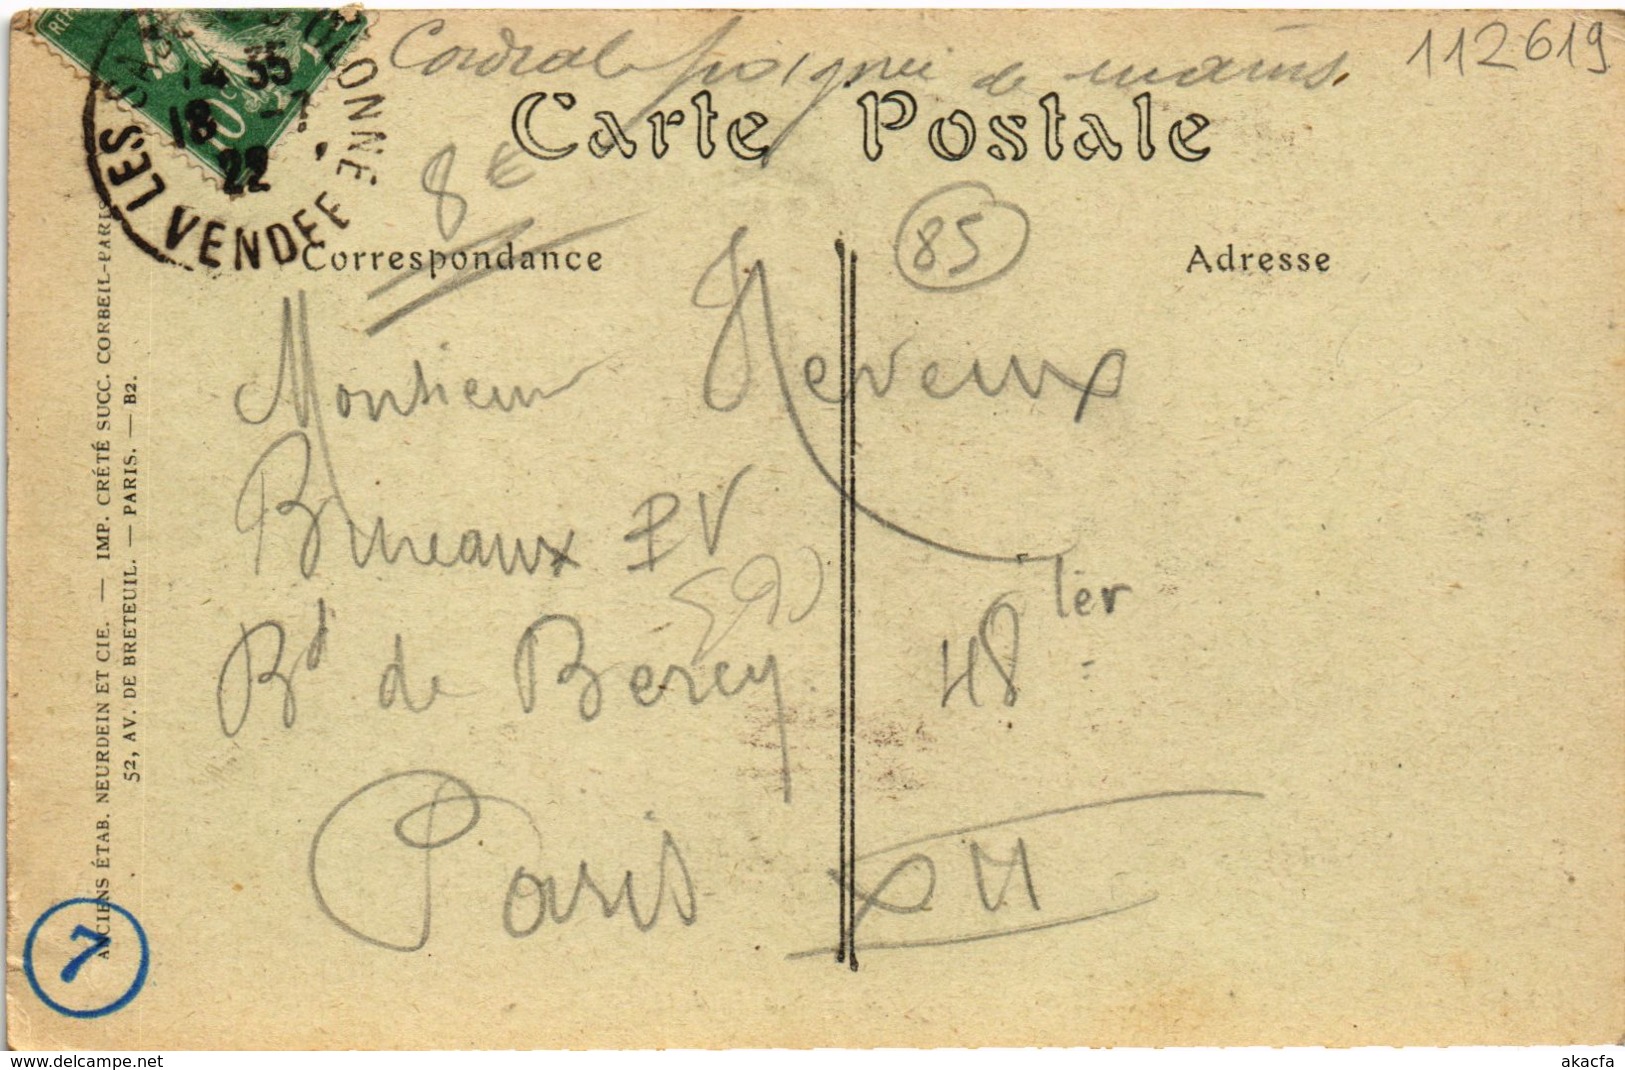 Cordiale poignée de mains.
112619
Carte Postale
8€
85
Correspondance
Adresse
LES SABLES D'OLONNE
VENDEE
14 35
18
22
10c
Monsieur Neveux
Bureaux PV
Bd de Bercy 48 ter
Paris XII
ANCIENS ÉTAB. NEURDEIN ET CIE. — IMP. CRÉTÉ SUCC. CORBEIL-PARIS
52, AV. DE BRETEUIL. — PARIS. — B2.
7
www.delcampe.net
akacfa